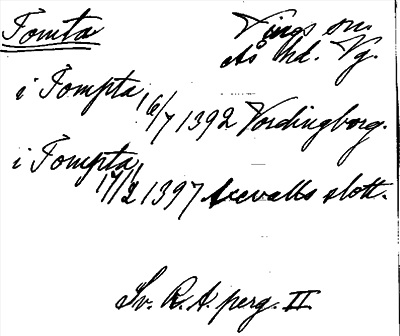 Tomta
Vings sn.
Ås hd. Vg.
i Tompta 16/7 1392 Vordingborg.
i Tompta 17/12 1397 Axevalls slott.
Sv. R. A. perg. II